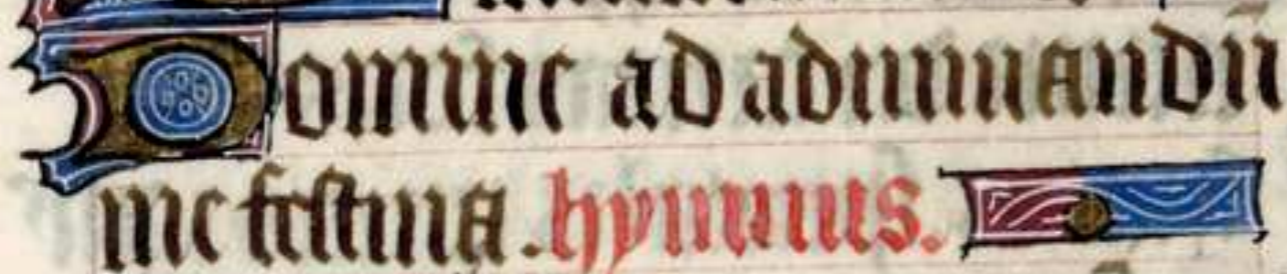 Domine ad adiuuandū
me festina. hymnus.